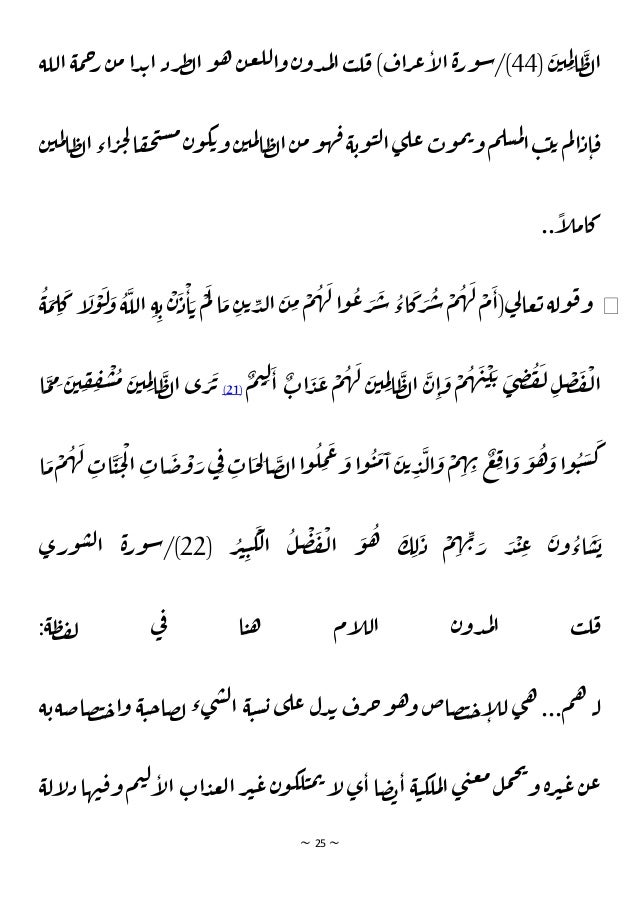 الظَّالِمِينَ (44)/سورة الأعراف) قلت المدون واللعن هو الطرد ابدا من رحمة الله
فإذا لم يتب المسلم ويموت علي التوبة فهو من الظالمين ويكون مستحقا لجزاء الظالمين
كاملاً..
وقوله تعالي(أَمْ لَهُمْ شُرَكَاءُ شَرَعُوا لَهُمْ مِنَ الدِّينِ مَا لَمْ يَأْذَنْ بِهِ اللَّهُ وَلَوْلَا كَلِمَةُ
الْفَصْلِ لَقُضِيَ بَيْنَهُمْ وَإِنَّ الظَّالِمِينَ لَهُمْ عَذَابٌ أَلِيمٌ (21) تَرَى الظَّالِمِينَ مُشْفِقِينَ مِمَّا
كَسَبُوا وَهُوَ وَاقِعٌ بِهِمْ وَالَّذِينَ آمَنُوا وَعَمِلُوا الصَّالِحَاتِ فِي رَوْضَاتِ الْجَنَّاتِ لَهُمْ مَا
يَشَاءُونَ عِنْدَ رَبِّهِمْ ذَلِكَ هُوَ الْفَضْلُ الْكَبِيرُ (22)/سورة الشوري
قلت المدون اللام هنا في لفظة:
لـ هم... هي للإختصاص وهو حرف يدل على نسبة الشيء لصاحبه واختصاصه به
عن غيره ويحمل معني الملكية أيضا أي لا يمتلكون غير العذاب الأليم وفيها دلالة
~ 25 ~